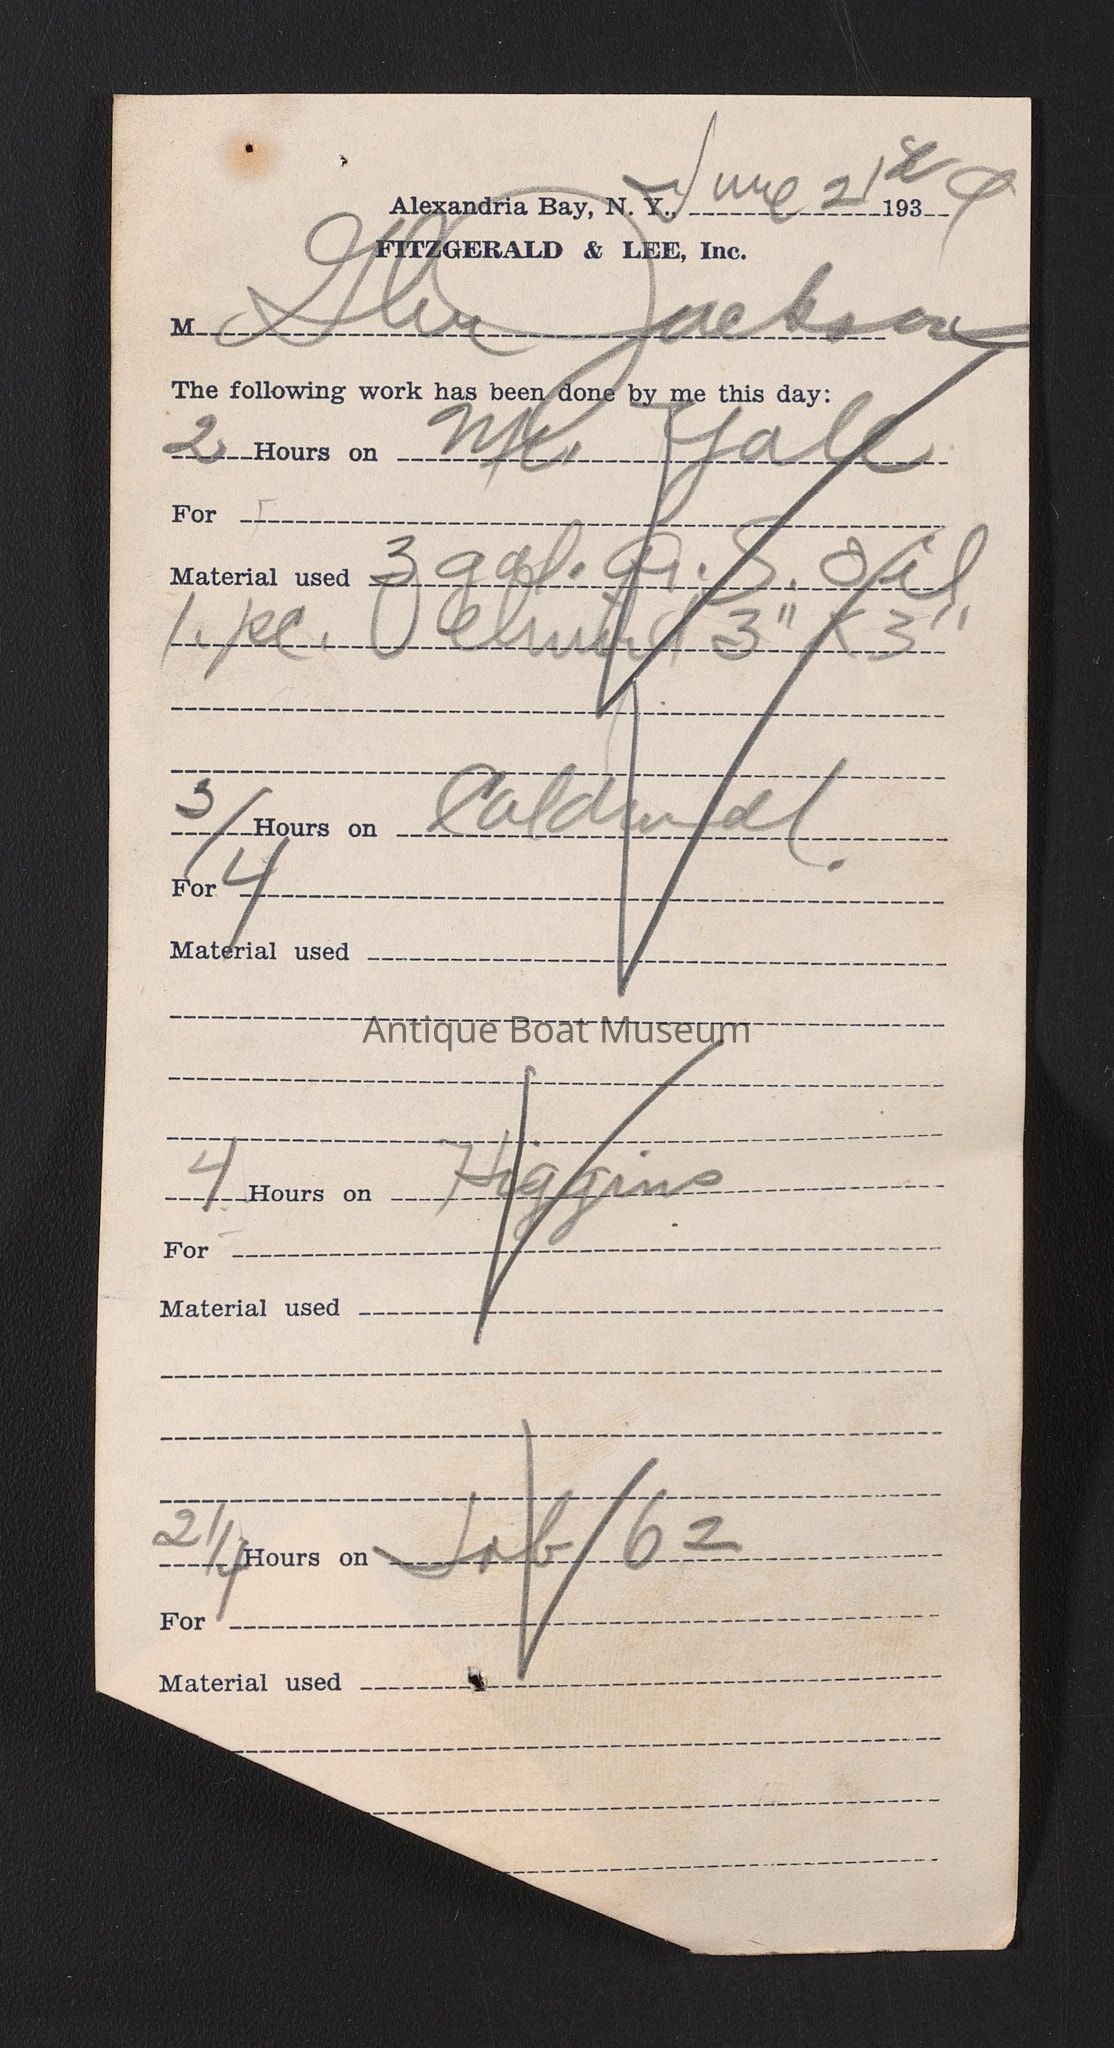 Alexandria Bay, N. Y., June 21st 1939
FITZGERALD & LEE, Inc.
M Glen Jackson
The following work has been done by me this day:
2 Hours on Mr.
For
Material used 3 gal. G. S. Oil
1. pc. 3" x 3"
3/4 Hours on Caldwell.
For
Material used
Antique Boat Museum
4 Hours on Higgins
For
Material used
2 1/4 Hours on Job 62
For
Material used